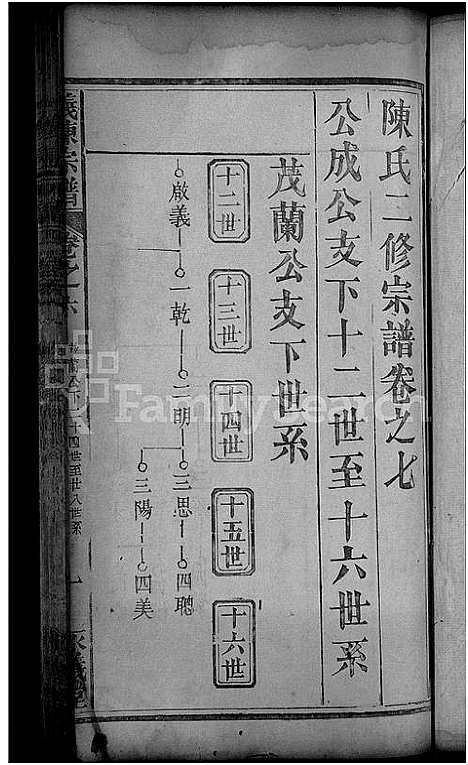 陳氏二修宗譜卷之七
公成公支下十二世至十六世系
茂蘭公支下世系
十二世
十三世
十四世
十五世
十六世
啟義 一乾 二明 三思 四聰
三陽 四美
義陳宗譜 卷之六
蘭公下十四世至廿八世系
一
FamilySearch